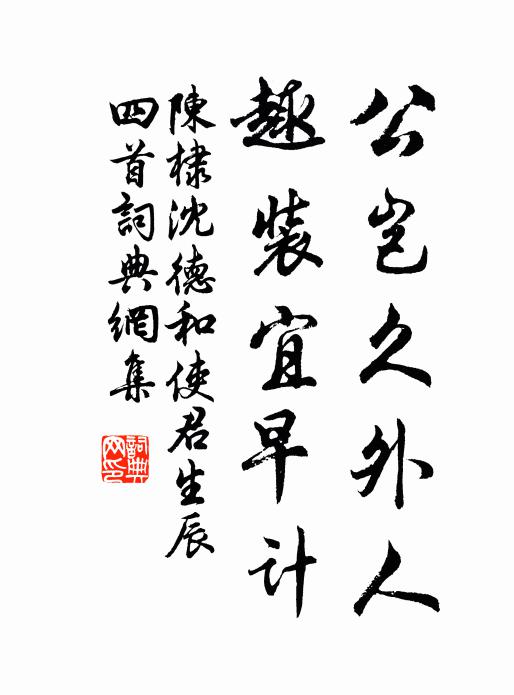 公豈久外人
趣裝宜早計
陳棣沈德和使君生辰
四首詞典網集
詞典网印